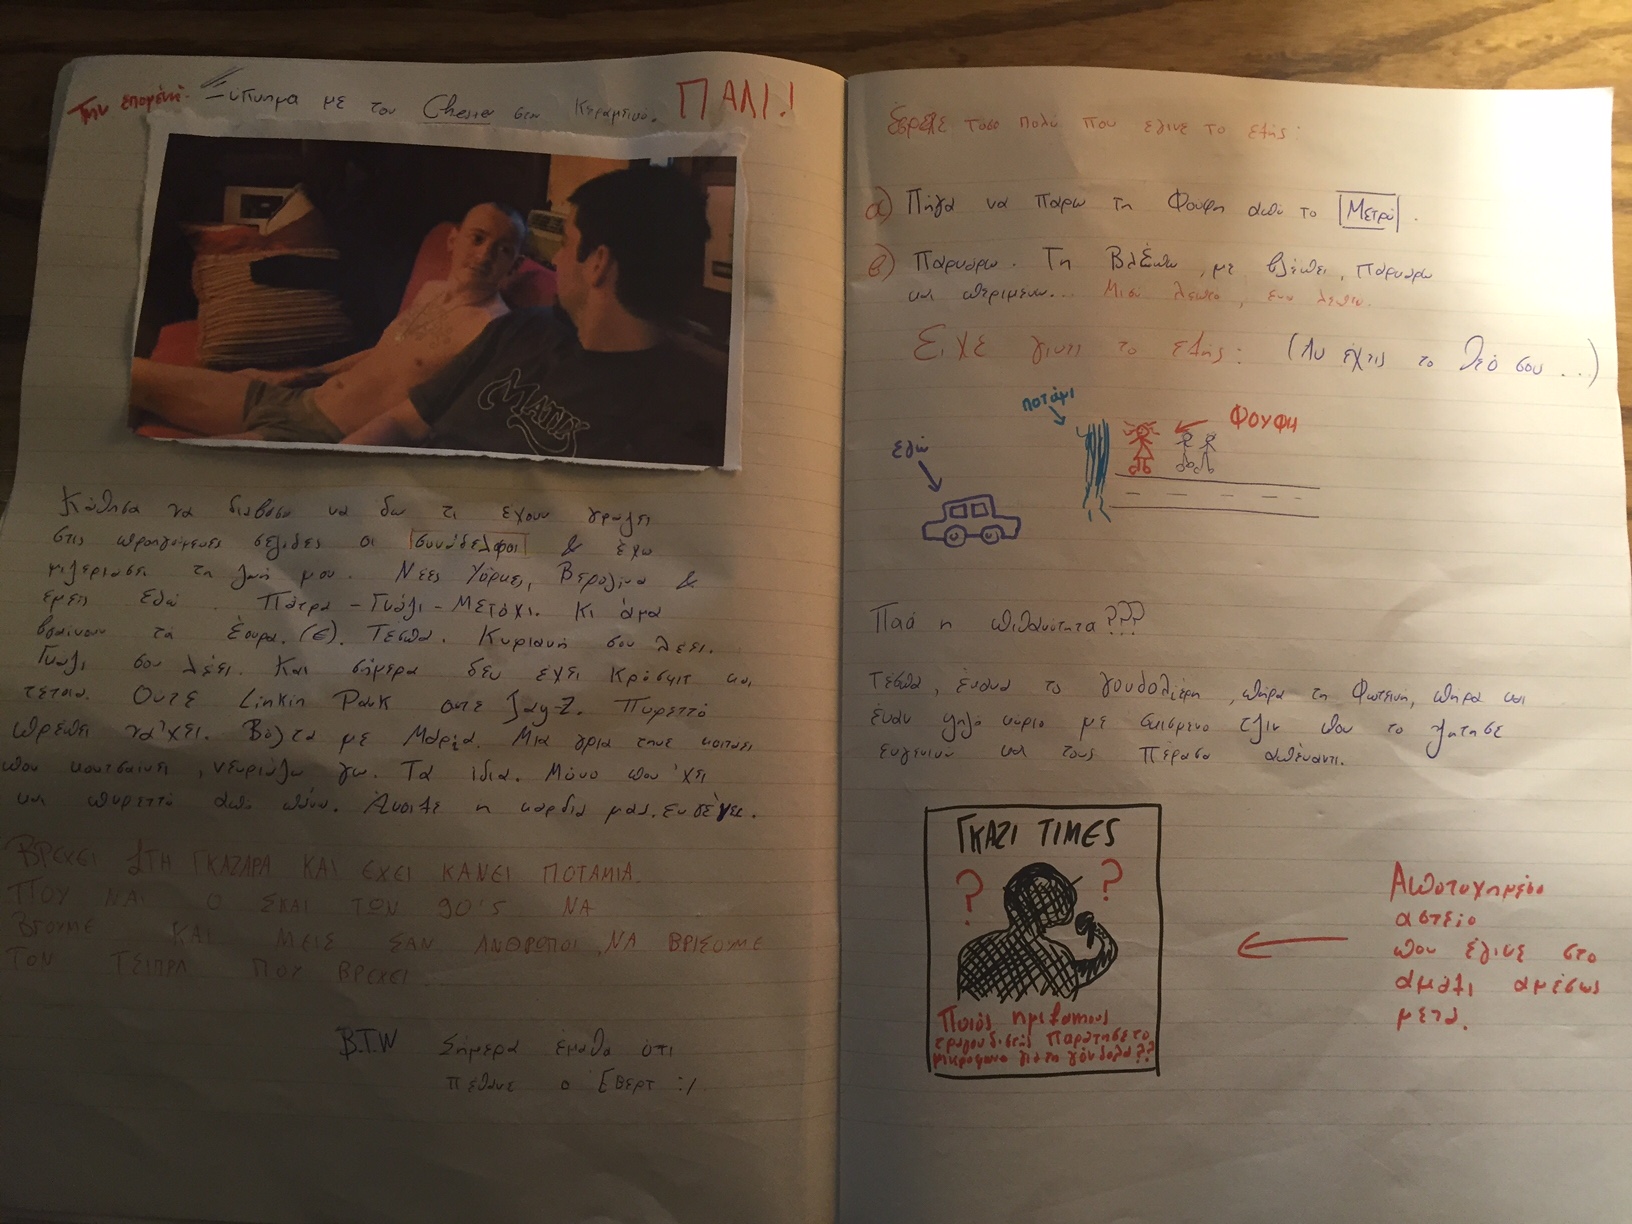 Την επομένη. Ξύπνημα με τον Chester στον Κεραμεικό. ΠΑΛΙ!
MATIX
Κάθησα να διαβάσω να δω τι έχουν γράψει
στις προηγούμενες σελίδες οι συνάδελφοι & έχω
μιζεριάσει τη ζωή μου. Νέες Υόρκες, Βερολίνα &
εμείς εδώ. Πάτρα - Γκάζι - Μετόχι. Κι άμα
βγαίνουν τα έουρα. (€). Τέσπα. Κυριακή σου λέει.
Γκάζι σου λέει. Και σήμερα δεν έχει και
τέτοια. Ούτε Linkin Park ούτε Jay-Z. Πυρεττό
πρέπει να 'χει. Βόλτα με Μαρία. Μια γριά την κοιτάει
που κουτσαίνει, νευριάζω γω. Τα ίδια. Μόνο που 'χει
και πυρεττό από πάνω. Άνοιξε η καρδιά μας.
ΒΡΕΧΕΙ ΣΤΗ ΓΚΑΖΑΡΑ ΚΑΙ ΕΧΕΙ ΚΑΝΕΙ ΠΟΤΑΜΙΑ.
ΠΟΥ ΝΑΙ Ο ΣΚΑΙ ΤΩΝ 90'S ΝΑ
ΒΓΟΥΜΕ ΚΑΙ ΜΕΙΣ ΣΑΝ ΑΝΘΡΩΠΟΙ, ΝΑ ΒΡΙΣΟΥΜΕ
ΤΟΝ ΤΣΙΠΡΑ ΠΟΥ ΒΡΕΧΕΙ.
B.T.W Σήμερα έμαθα ότι
πέθανε ο Έβερτ :/
Έβρεξε τόσο πολύ που έγινε το εξής:
α) Πήγα να πάρω τη Φουφη από το Μετρό.
β) Παρκάρω. Τη Βλέπω, με βλέπει, παρκάρω
και περιμένω... Μισό λεπτό, ένα λεπτό.
Είχε γίνει το εξής: (Αν έχεις το Θεό σου...)
ποτάμι
Φουφη
εγώ
Ποιά η πιθανότητα???
Τέσπα, έκανα το γονδολιέρη, πήρα τη Φωτεινή, πήρα και
έναν ψηλό κύριο με σκισμένο τζιν που το ζήτησε
ευγενικά και τους πέρασα απέναντι.
ΓΚΑΖΙ TIMES
? ?
Ποιός ημιξακους
τραγουδιστής παράτησε το
μικρόφωνο για τη γόνδολα??
Αποτυχημένο
αστείο
που έγινε στο
αμάξι αμέσως
μετά.